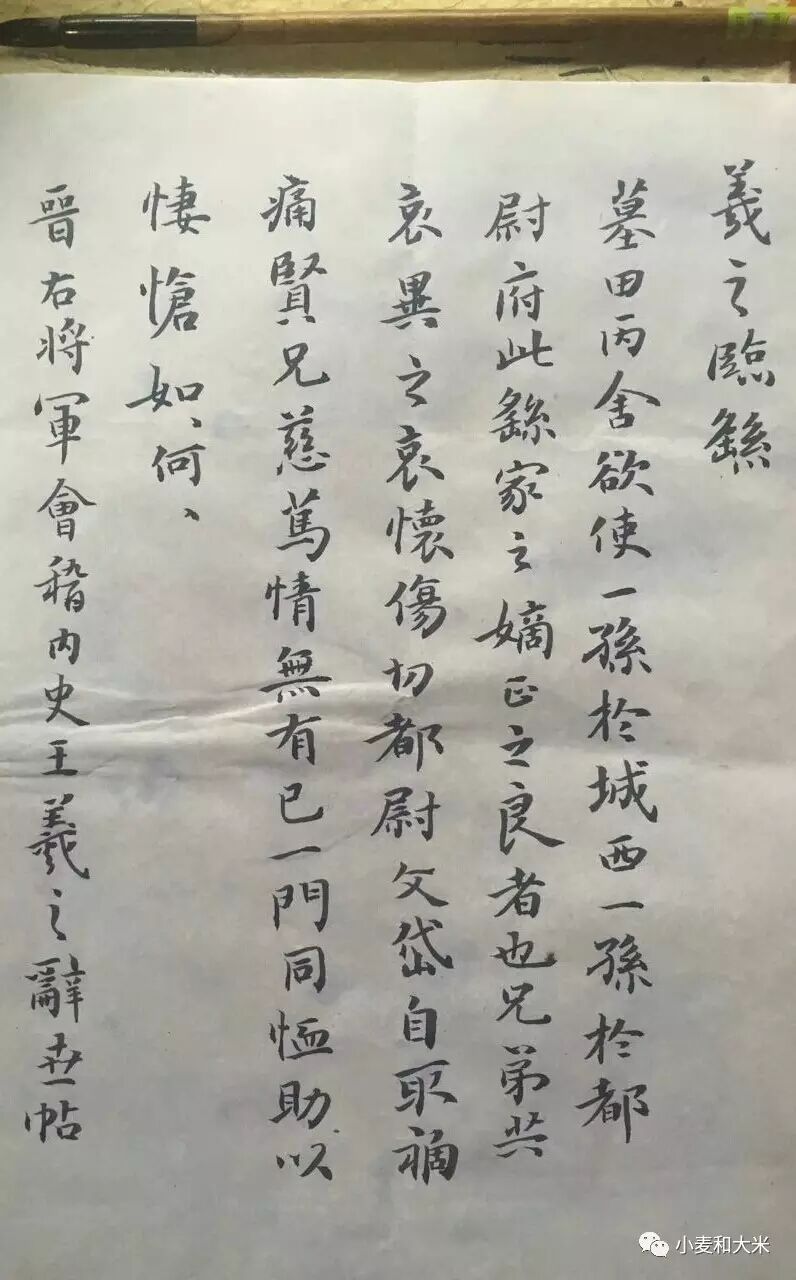 羲之臨繇
墓田丙舍欲使一孫於城西一孫於都
尉府此繇家之嫡正之良者也兄弟共
哀異之哀懷傷切都尉文岱自取禍
痛賢兄慈篤情無有已一門同恤助以
悽愴如、何、
晉右將軍會稽內史王羲之辭世帖
小麦和大米